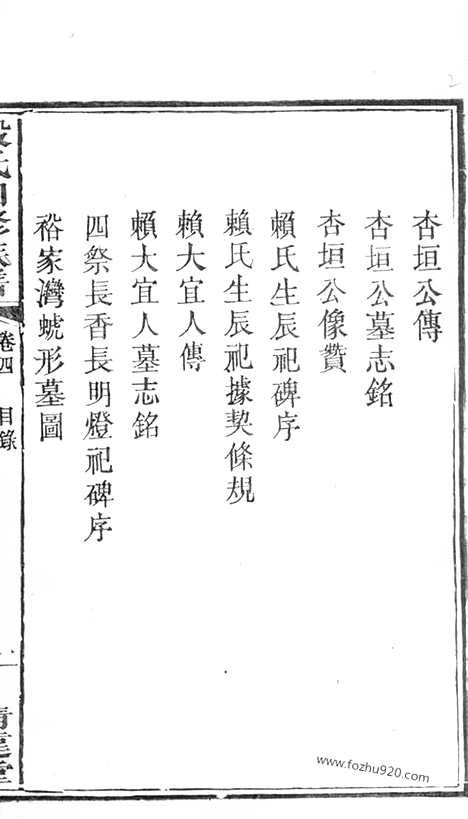 杏垣公傳
杏垣公墓志銘
杏垣公像贊
賴氏生辰祀碑序
賴氏生辰祀據契條規
賴大宜人傳
賴大宜人墓志銘
四祭長香長明燈祀碑序
裕家灣虓形墓圖
卷四 目錄
www.fozhu920.com